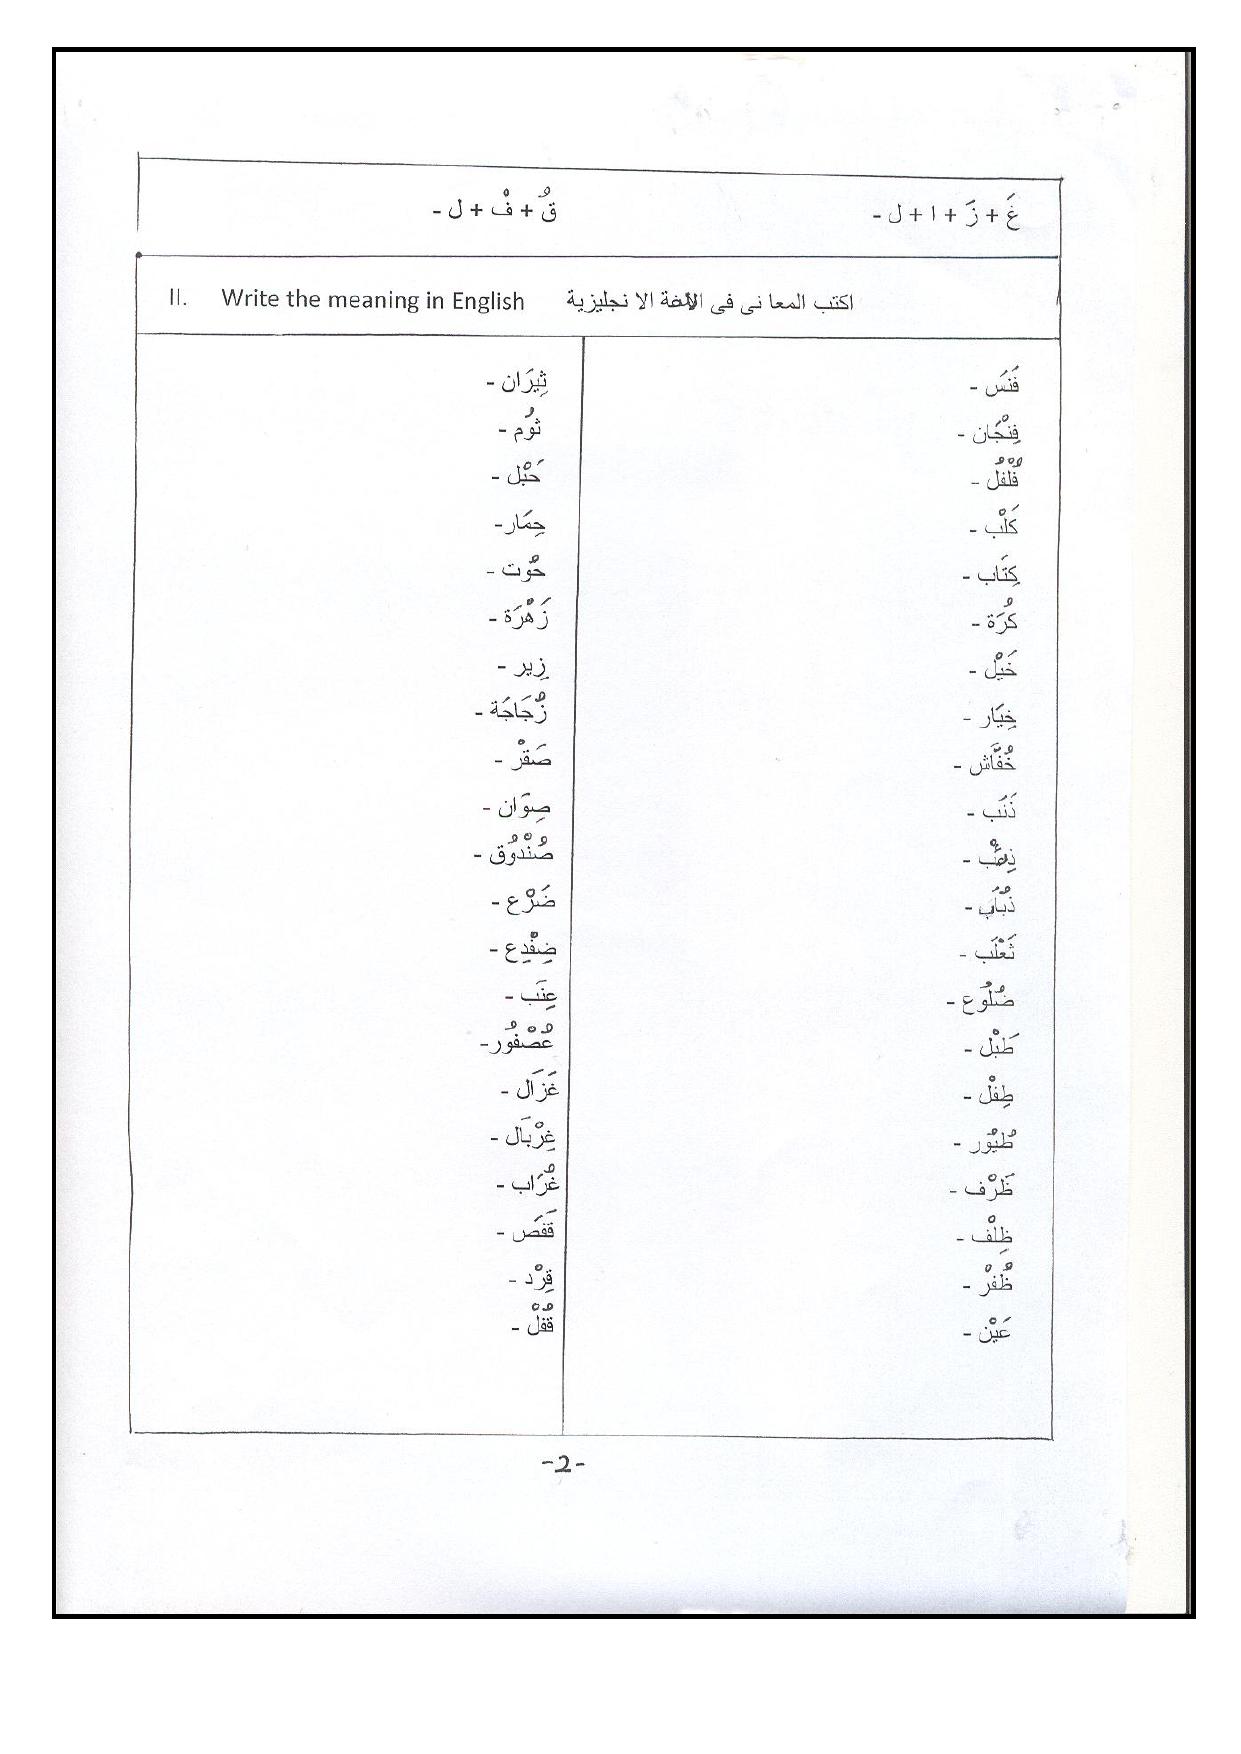 غَ + زَ + ا + ل -
قُ + فْ + ل -
II. Write the meaning in English اكتب المعا نى فى الالغة الا نجليزية
فَنَس -
فِنْجَان -
فُلْفُل -
كَلْب -
كِتَاب -
كُرَة -
خَيْل -
خِيَار -
خُفَّاش -
ذَنَب -
ذِئْب -
ذُبَاب -
ثَعْلَب -
ضُلُوع -
طَبْل -
طِفْل -
طُيُور -
ظَرْف -
ظِلْف -
ظُفْر -
عَيْن -
ثِيَرَان -
ثُوم -
حَبْل -
حِمَار -
حُوت -
زَهْرَة -
زِير -
زُجَاجَة -
صَقْر -
صِوَان -
صُنْدُوق -
ضَرْع -
ضِفْدِع -
عِنَب -
عُصْفُور -
غَزَال -
غِرْبَال -
غُرَاب -
قَفَص -
قِرْد -
قُفْل -
-2-